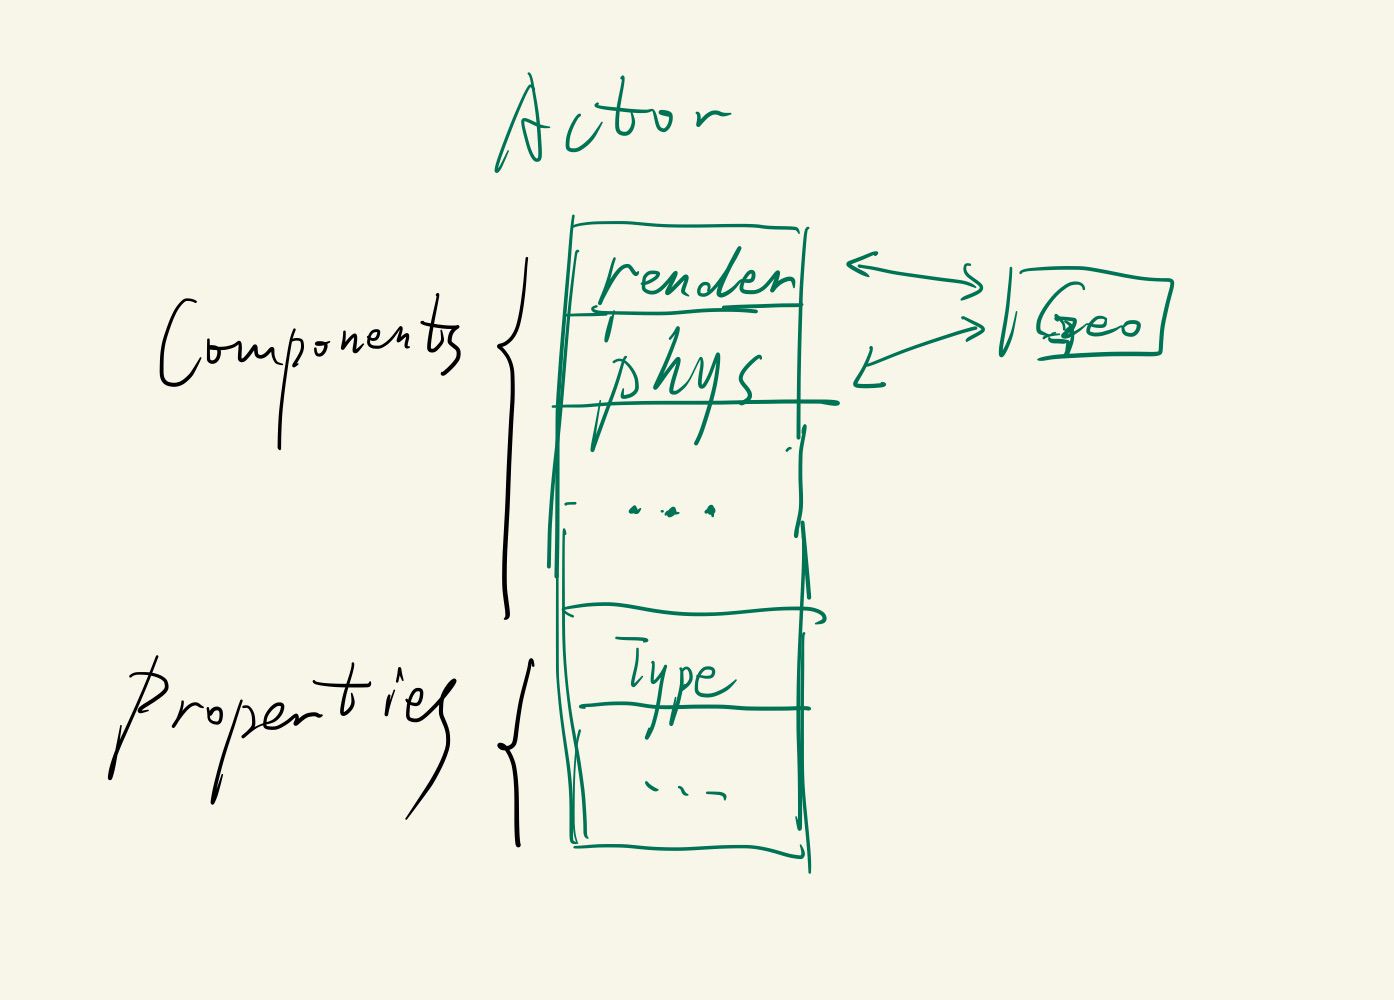 Actor
Components
render
Geo
phys
...
Properties
Type
...